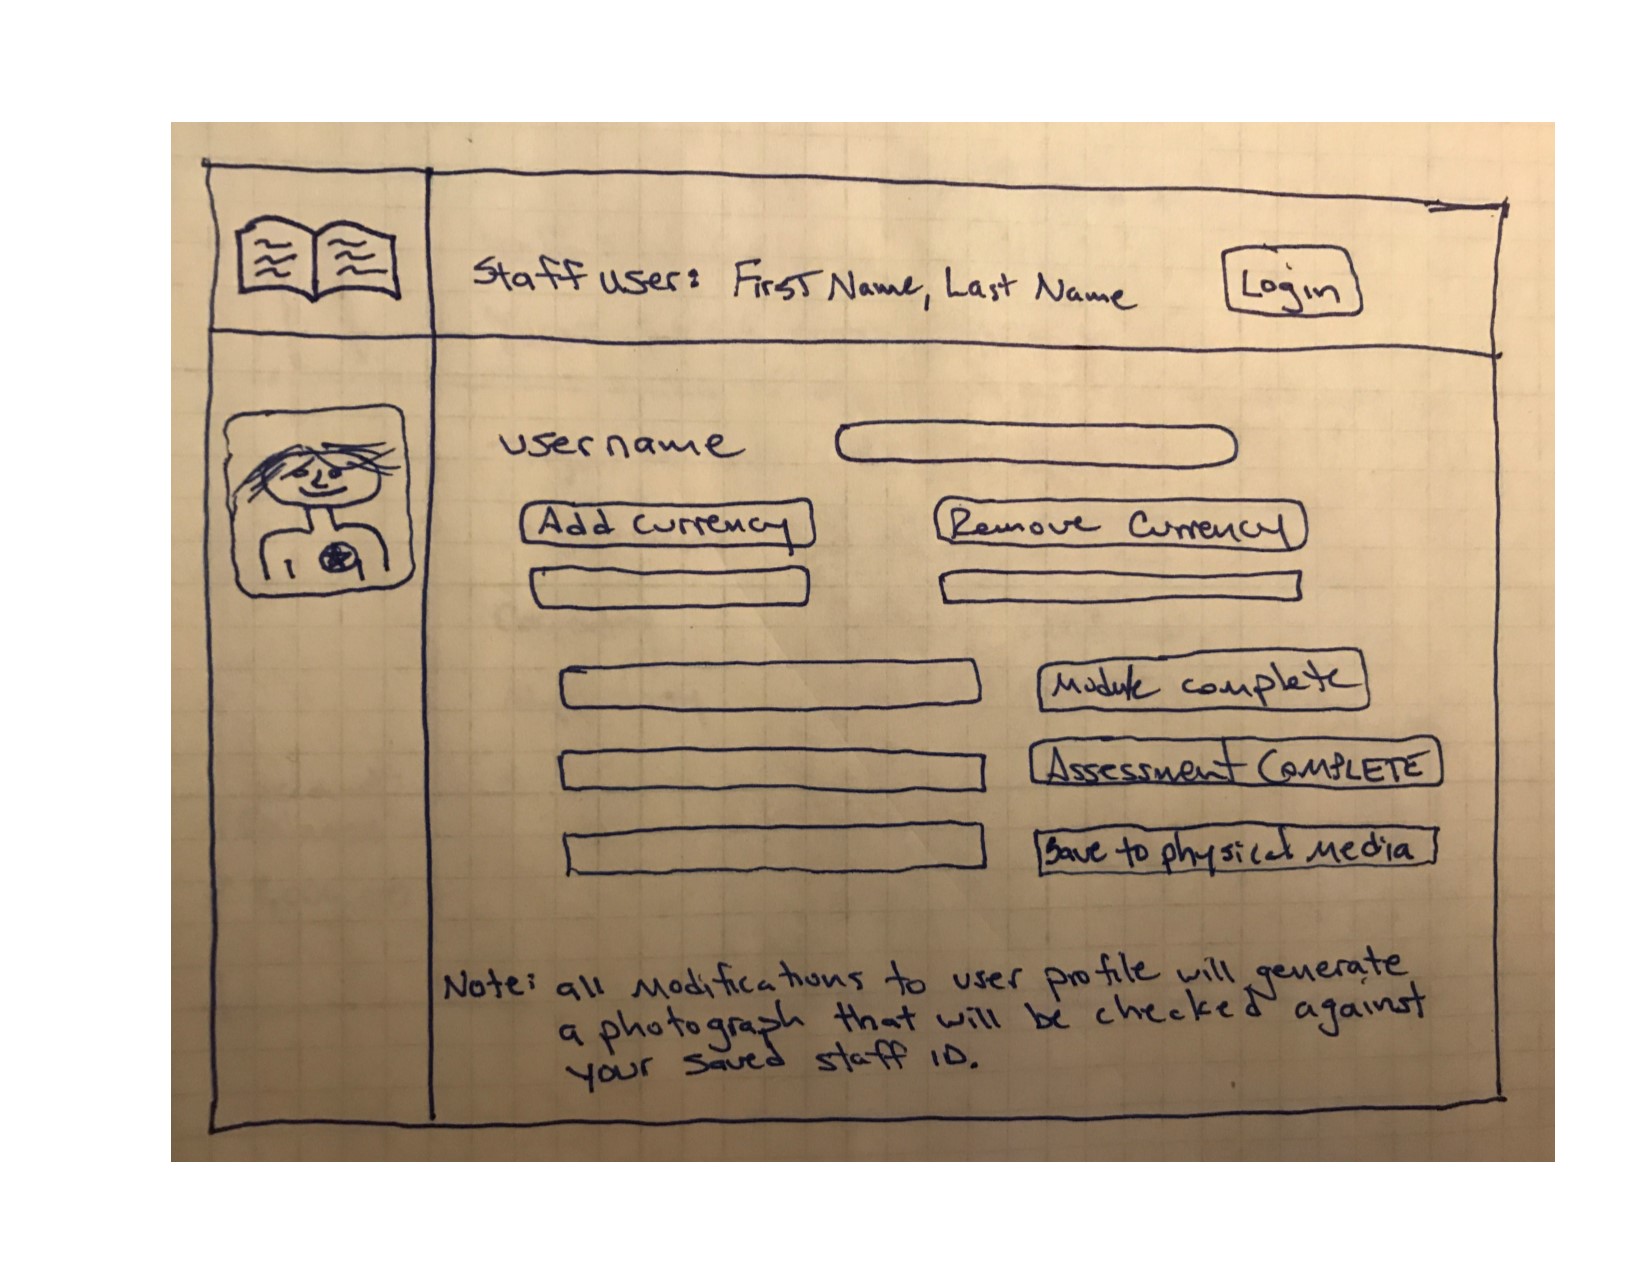 Staff user: First Name, Last Name Login
username
Add currency Remove Currency
Module complete
Assessment COMPLETE
Save to physical media
Note: all modifications to user profile will generate
a photograph that will be checked against
your saved staff ID.